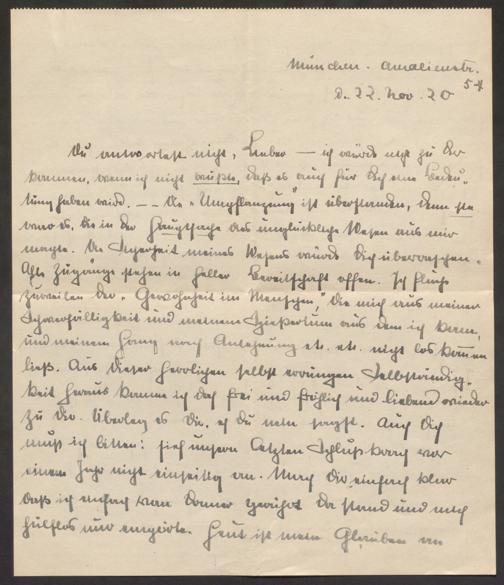 München. Amalienstr.
54
d. 22. Nov. 20
Du antwortest nicht, Lieber — ich würde nicht zu Dir
kommen, wenn ich nicht wüßte, daß es auch für Dich eine Bedeu-
tung haben wird. — Die „Umpflanzung" ist überstanden, denn sie
war es, die in der Hauptsache das unglückliche Wesen aus mir
machte. Die Sicherheit meines Wesens würde Dich überraschen.
Alle Zugänge stehen in heller Bereitschaft offen. Ich fluche
zuweilen der „Gewohnheit im Menschen", die mich aus meiner
Schwerfälligkeit und meinem aus dem ich kam,
und meinem Hang nach Anlehnung etc. etc. nicht los kommen
ließ. Aus dieser herrlichen selbst errungen Selbständig-
keit heraus komme ich doch frei und fröhlich und liebend wieder
zu Dir. Überleg es Dir, eh Du nein sagst. Auch Dich
muß ich bitten: sieh unsern letzten Schlußkrach vor
einem Jahr nicht einseitig an. Mach Dir einfach klar
daß ich einfach vom Donner gerührt da stand und mich
hülflos nur empörte. Heut ist mein Glauben an